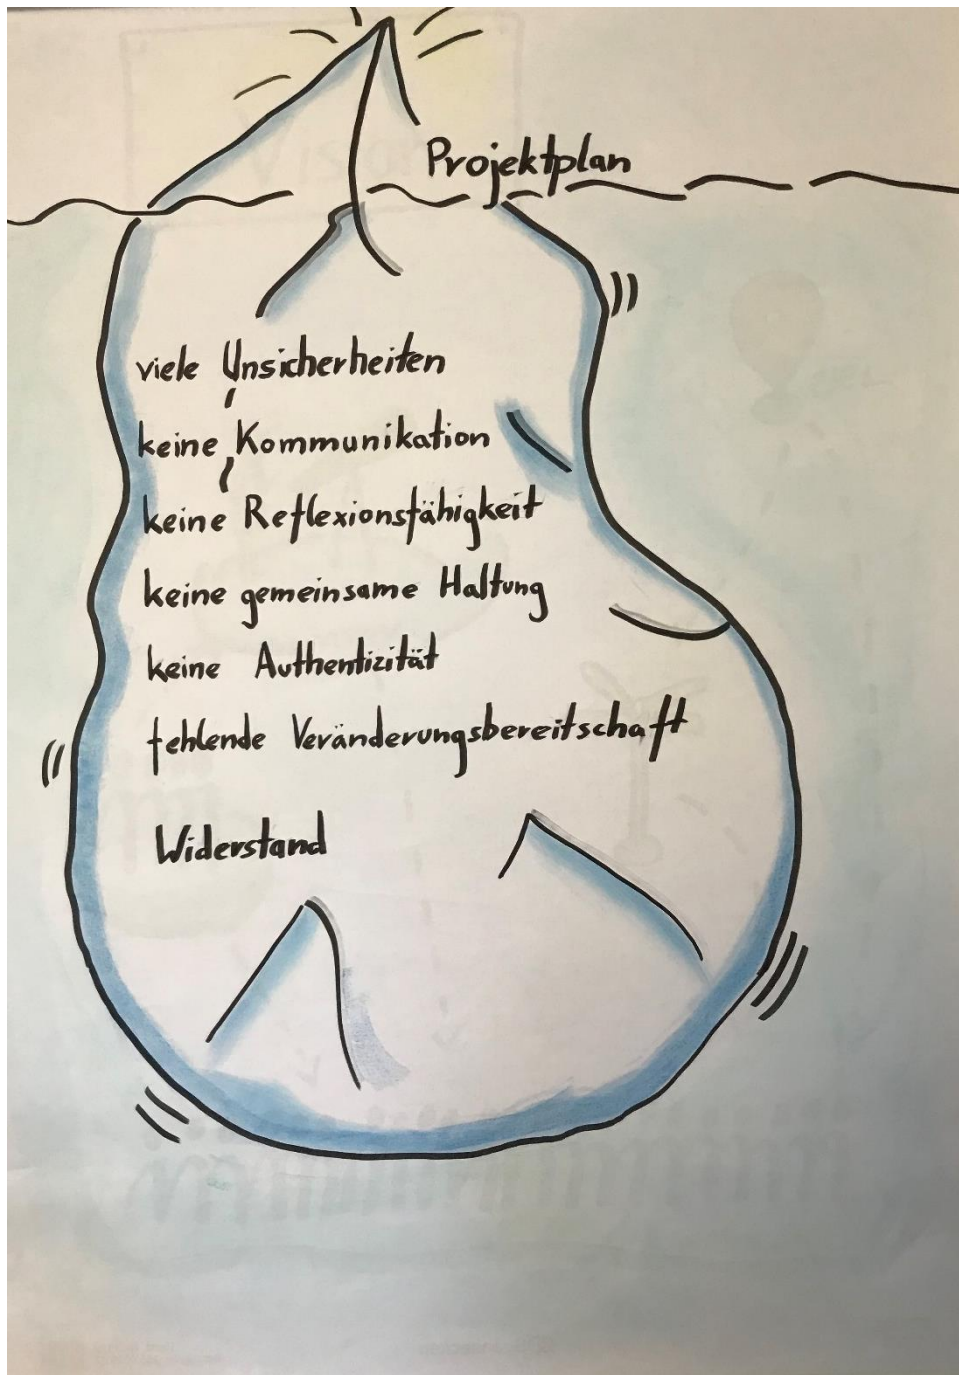 Projektplan
viele Unsicherheiten
keine Kommunikation
keine Reflexionsfähigkeit
keine gemeinsame Haltung
keine Authentizität
fehlende Veränderungsbereitschaft
Widerstand